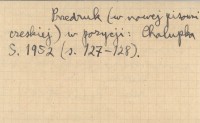 Przedruk (w nowej pisowni
czeskiej) w pozycji: Chalupka
S. 1952 (s. 127–128).